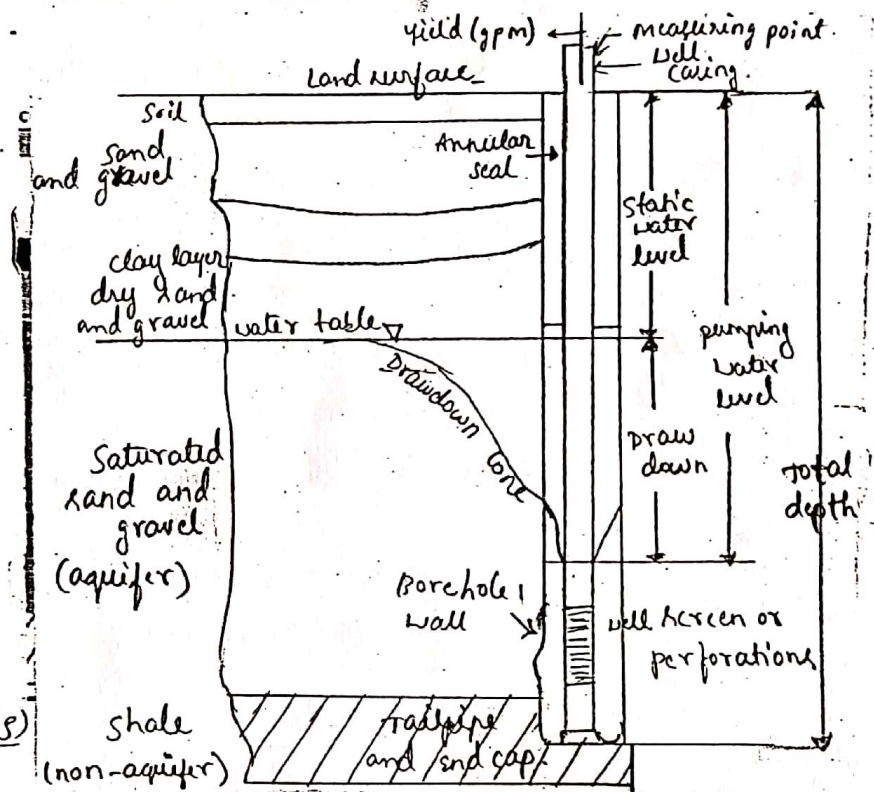 yield (gpm)
measuring point.
well
casing.
Land surface
Soil
sand
and gravel
Annular
seal
Static
water
level
clay layer
dry sand
and gravel
water table
pumping
water
level
Drawdown cone
Draw
down
Total
depth
Saturated
sand and
gravel
(aquifer)
Borehole
wall
well screen or
perforations
Shale
(non-aquifer)
Tailpipe
and end cap.